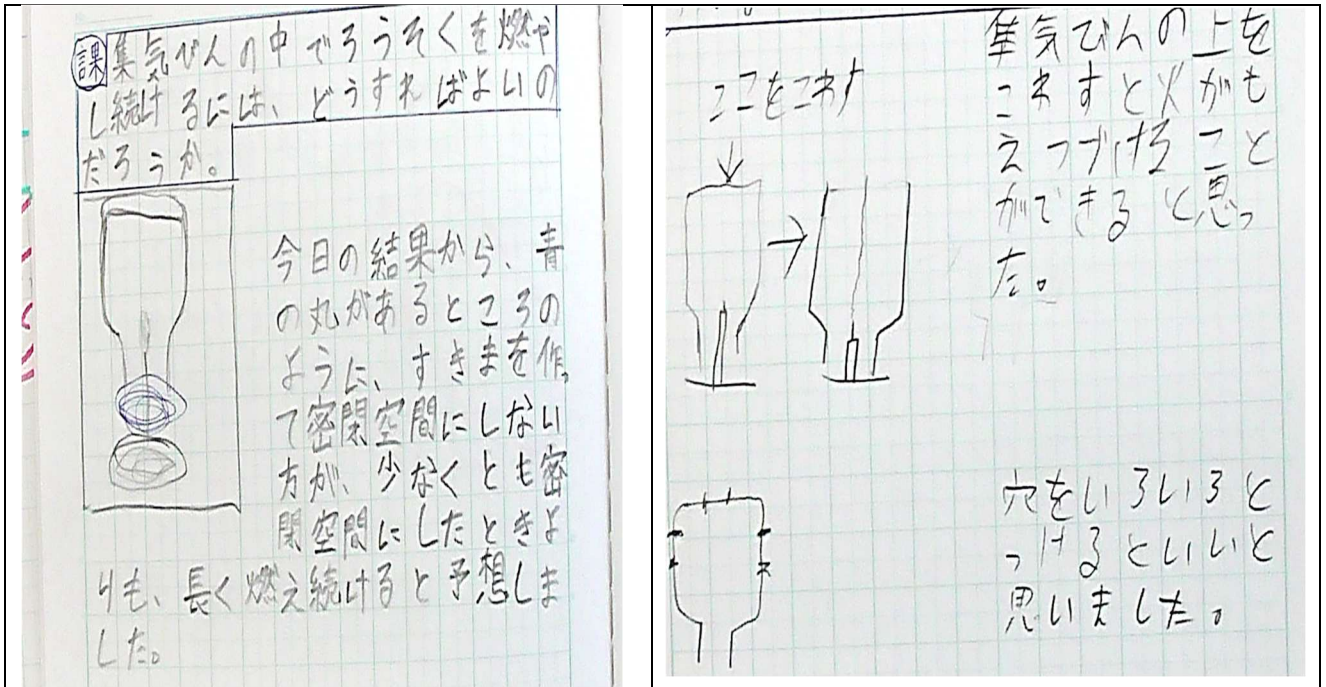 課 集気びんの中でろうそくを燃や
し続けるには、どうすればよいの
だろうか。
今日の結果から、青
の丸があるところの
ように、すきまを作っ
て密閉空間にしない
方が、少なくとも密
閉空間にしたときよ
りも、長く燃え続けると予想しま
した。
ここをこわす
集気びんの上を
こわすと火がも
えつづけること
ができると思っ
た。
穴をいろいろと
つけるといいと
思いました。